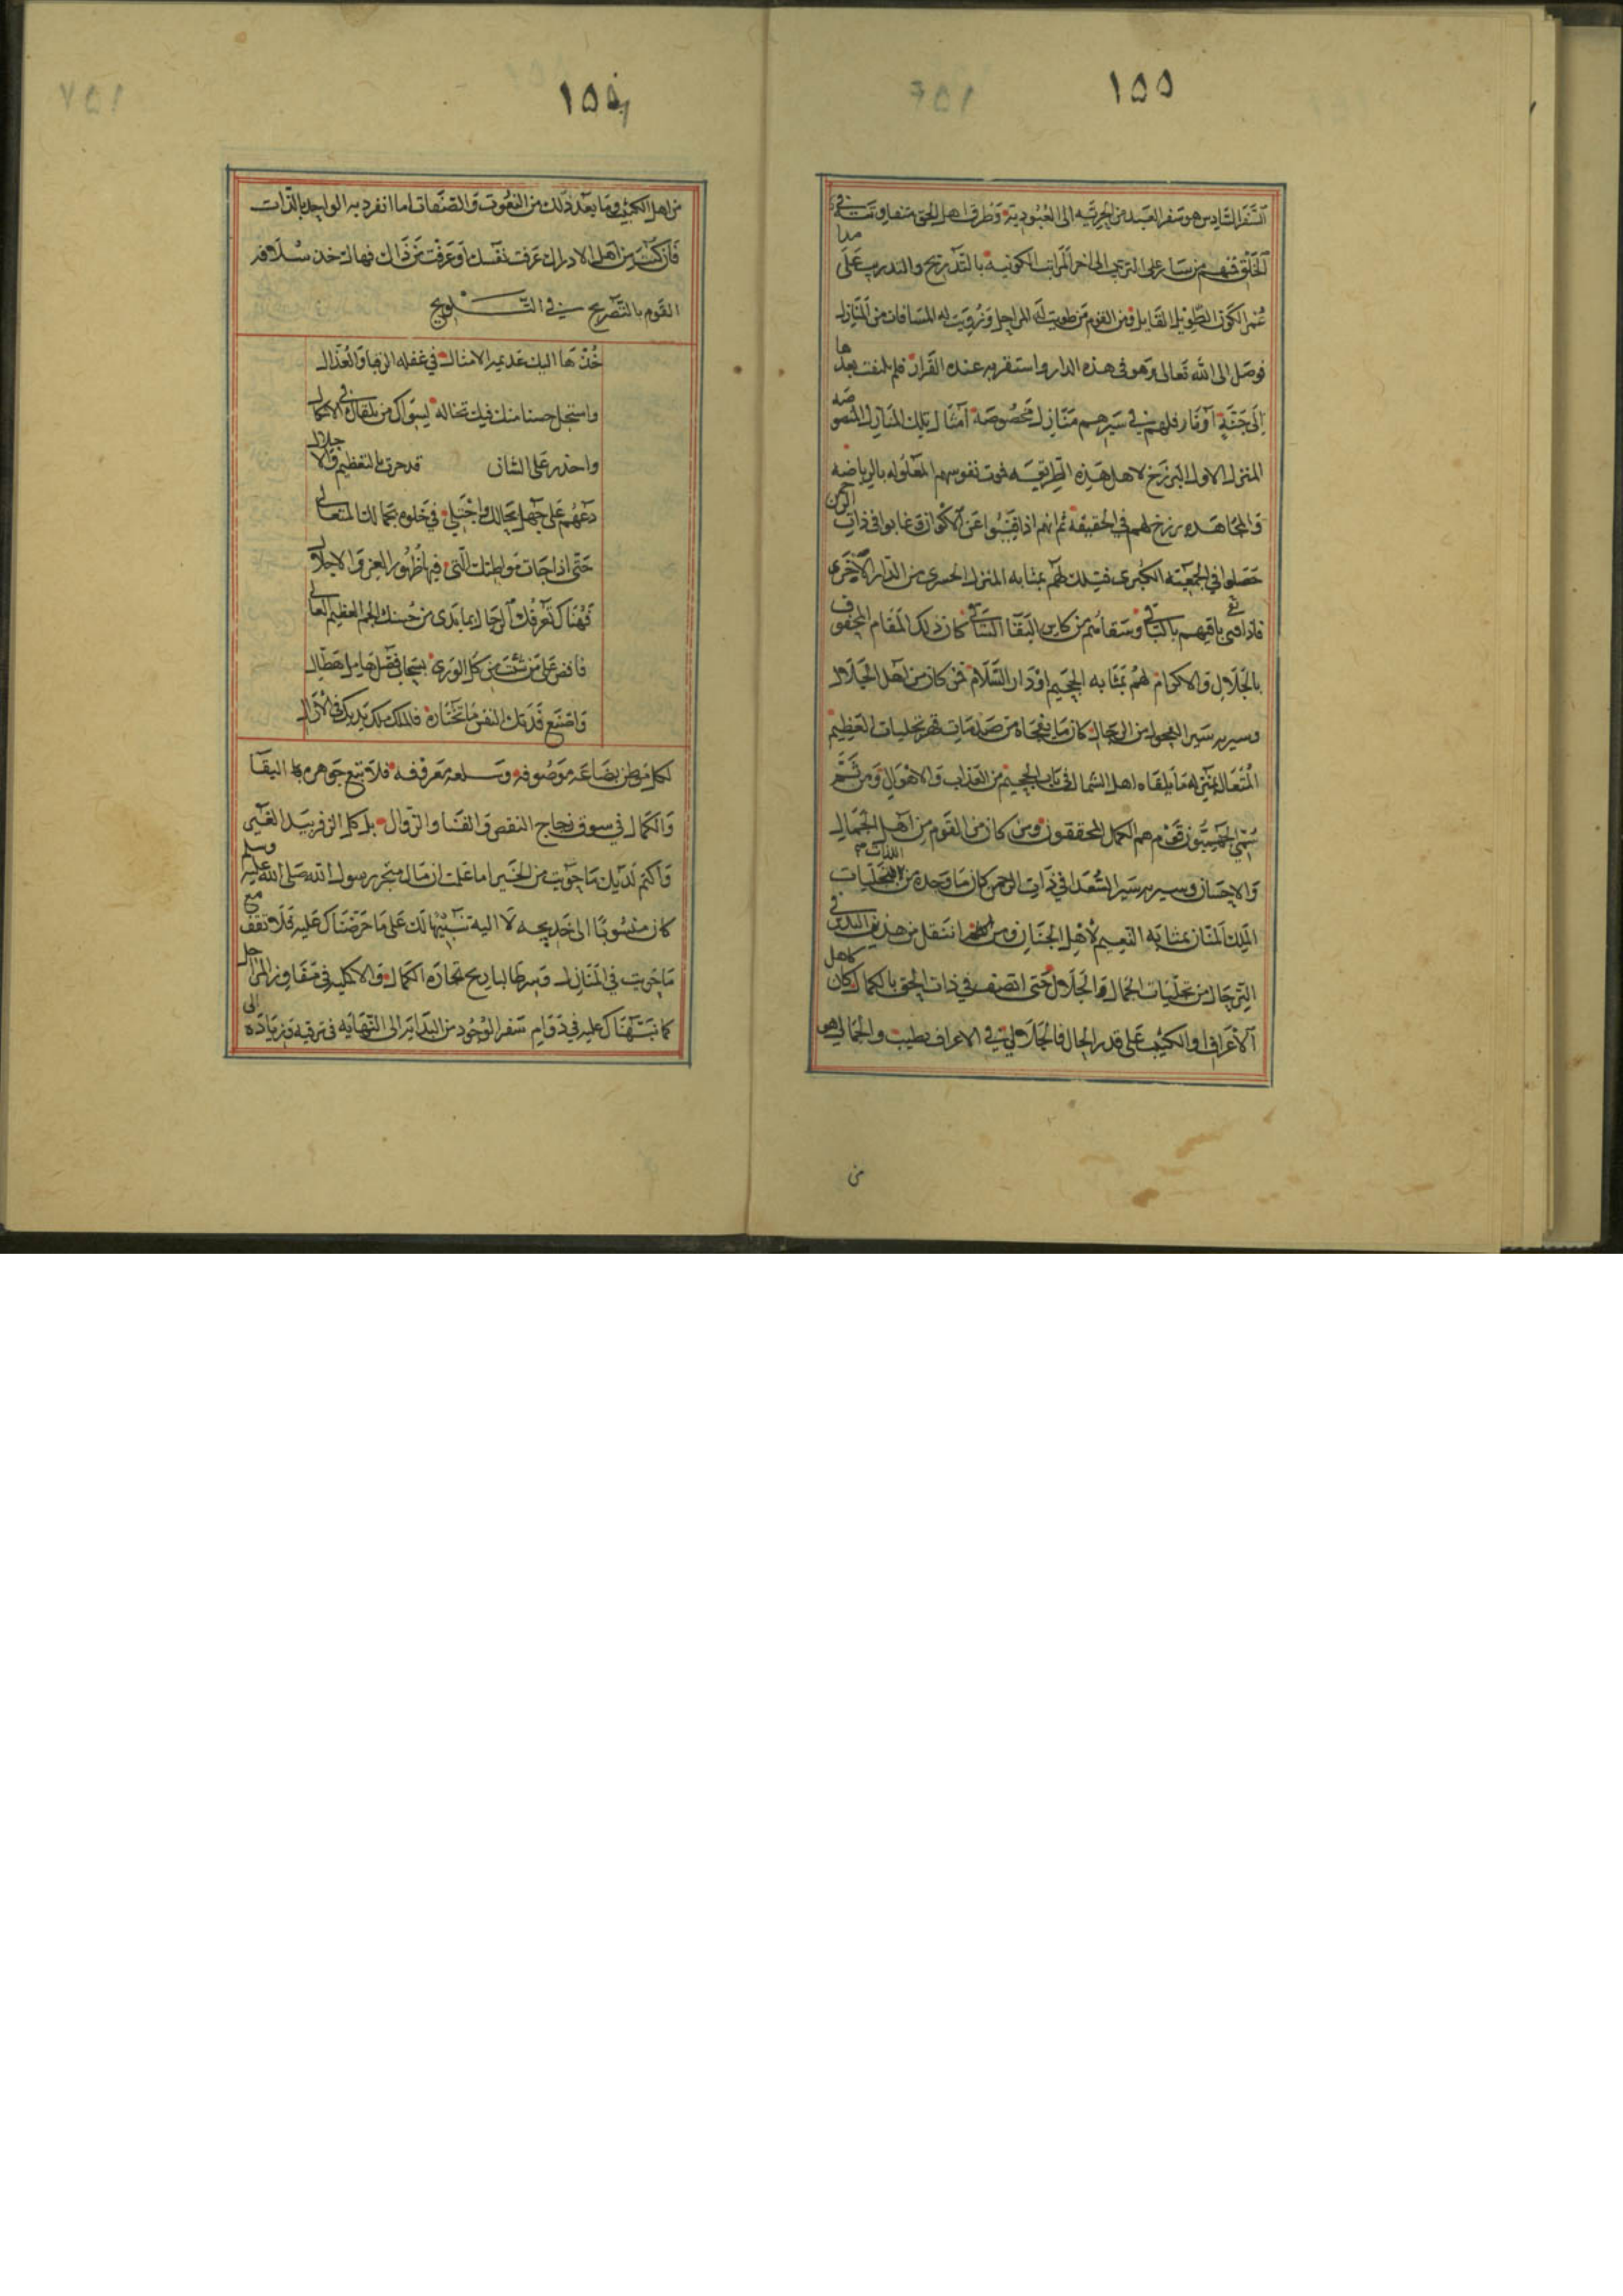 ١٥٥
السفر السادس هو سفر العبد من الحرية الى العبودية وطرق اهل الحق متفاوتة في مدا
الخلق فمنهم من سار على الترتيب الى اخر المراتب الكونية بالتدريج والتدرب على
عمر الكون الطويل القابل ومن القوم من طويت له المراحل وزويت له المسافات من المنازل
فوصل الى الله تعالى وهو في هذه الدار واستقر به عنده القرار فلم يلتفت بعدها
الى جنة او نار فلهم في سيرهم منازل مخصوصة امثال تلك المنازل المنصوصه
المنزل الاول البرزخ لاهل هذه الطريقه موت نفوسهم المعلوله بالرياضه
والمجاهده برزخ لهم في الحقيقة ثم انهم اذا فنوا عن الاكوان وغابوا في ذات الرحمن
حصلوا في الجمعية الكبرى فتلك لهم بمثابه المنزل الحشرى من الدار الاخرى
فاذا هى باقيهم بالباقي وسقاهم من كاس البقا الساقي كان ذلك المقام المحفوف
بالجلال والاكرام لهم بمثابه الجحيم او دار السلام فمن كان من اهل الجلال
وسير به سير الفحول من الرجال كان ما يفجاه من صدمات قهر تجليات العظيم
المتعال بمنزله ما يلقاه اهل الشمال في باب الجحيم من العذاب والاهوال ومن ثم
سمي الجهنميون قوم هم الكمل المحققون ومن كان من القوم من اهل الجمال
والاحسان وسير به سير السعدا في ذات الرحمن كان ما وجده من اللذات التجليات
الملك المنان بمثابه النعيم لأهل الجنان ومن انتقل من هذين البدل في
الترحال من تجليات الجمال والجلال حتى اتصف في ذات الحق بالكمال كان كاهل
الاعراف او الكثيب على قدر الحال فالجلالي في الاعراف يطيب والجمالي هو
من
١٥٦
من اهل الكثيب وما بعد ذلك من النعوت والصفات اما انفرد به الواحد بالذات
فان كنت من اهل الادراك عرفت نفسك او عرفت من ذاك فهالك خذ سلافه
القوم بالتصريح في التلويح
خذها اليك عديمة الامثال في غفله الرقبا والعذال
واستجل حسنا منك فيك تخاله ليسواك من يلقاك في الاكمال
واحذر على الشان قد حرت بالتعظيم والاجلال
دعهم على جهل بحالك واجتلي في خلوه بجمالك المتعالي
حتى اذا جات مواطنك التي فيها ظهور العز والاجلال
فهناك تعرفك الرجال بما بدى من حسنك الجم العظيم العالي
فافض على من شئت من كل الورى بسحاب فضل هامل هطال
واصنع فديتك النفس ما تختاره فالملك ملك يديك في الازال
لكل موطن بضاعة موصوفة وسلعه معروفه فلا تبع جوهره البقا
والكمال في سوق زجاج النقص والفنا والزوال بل كل الزفر بيد الغير
واكتم لديك ما حويت من الخير اما علمت ان مال متجر رسول الله صلى الله عليه وسلم
كان منسوبا الى خديجه لا اليه تنبيها لك على ما حرضناك عليه فلا تقف مع
ما حويت في المنازل وسر طالبا ربح تجارة الكمال والاكمليه في مفاوز المراحل
كما نبهناك عليه في دوام سفر الوجود من البدايه الى النهايه في ترقيه من زيادة الى